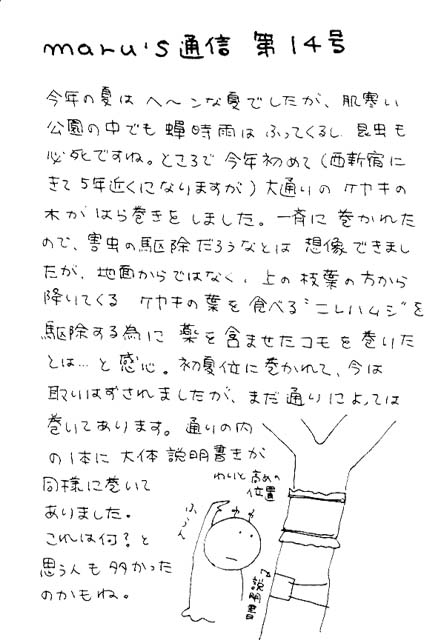 maru's通信 第14号
今年の夏は ヘ〜ンな夏でしたが、肌寒い
公園の中でも 蟬時雨は ふってくるし 昆虫も
必死ですね。ところで 今年初めて(西新宿に
きて5年近くになりますが)大通りの ケヤキの
木が はら巻きを しました。一斉に 巻かれた
ので、害虫の駆除だろうなとは 想像できまし
たが、地面からではなく、上の枝葉の方から
降りてくる ケヤキの葉を 食べる"ニレハムシ"を
駆除する為に 薬を含ませたコモを巻いた
とは…と 感心。初夏位に巻かれて、今は
取りはずされましたが、まだ通りによっては
巻いてあります。通りの内
の1本に 大体 説明書きが
同様に巻いて
ありました。
これは何?と
思う人も多かった
のかもね。
わりと高めの
位置
ふーん
説明書